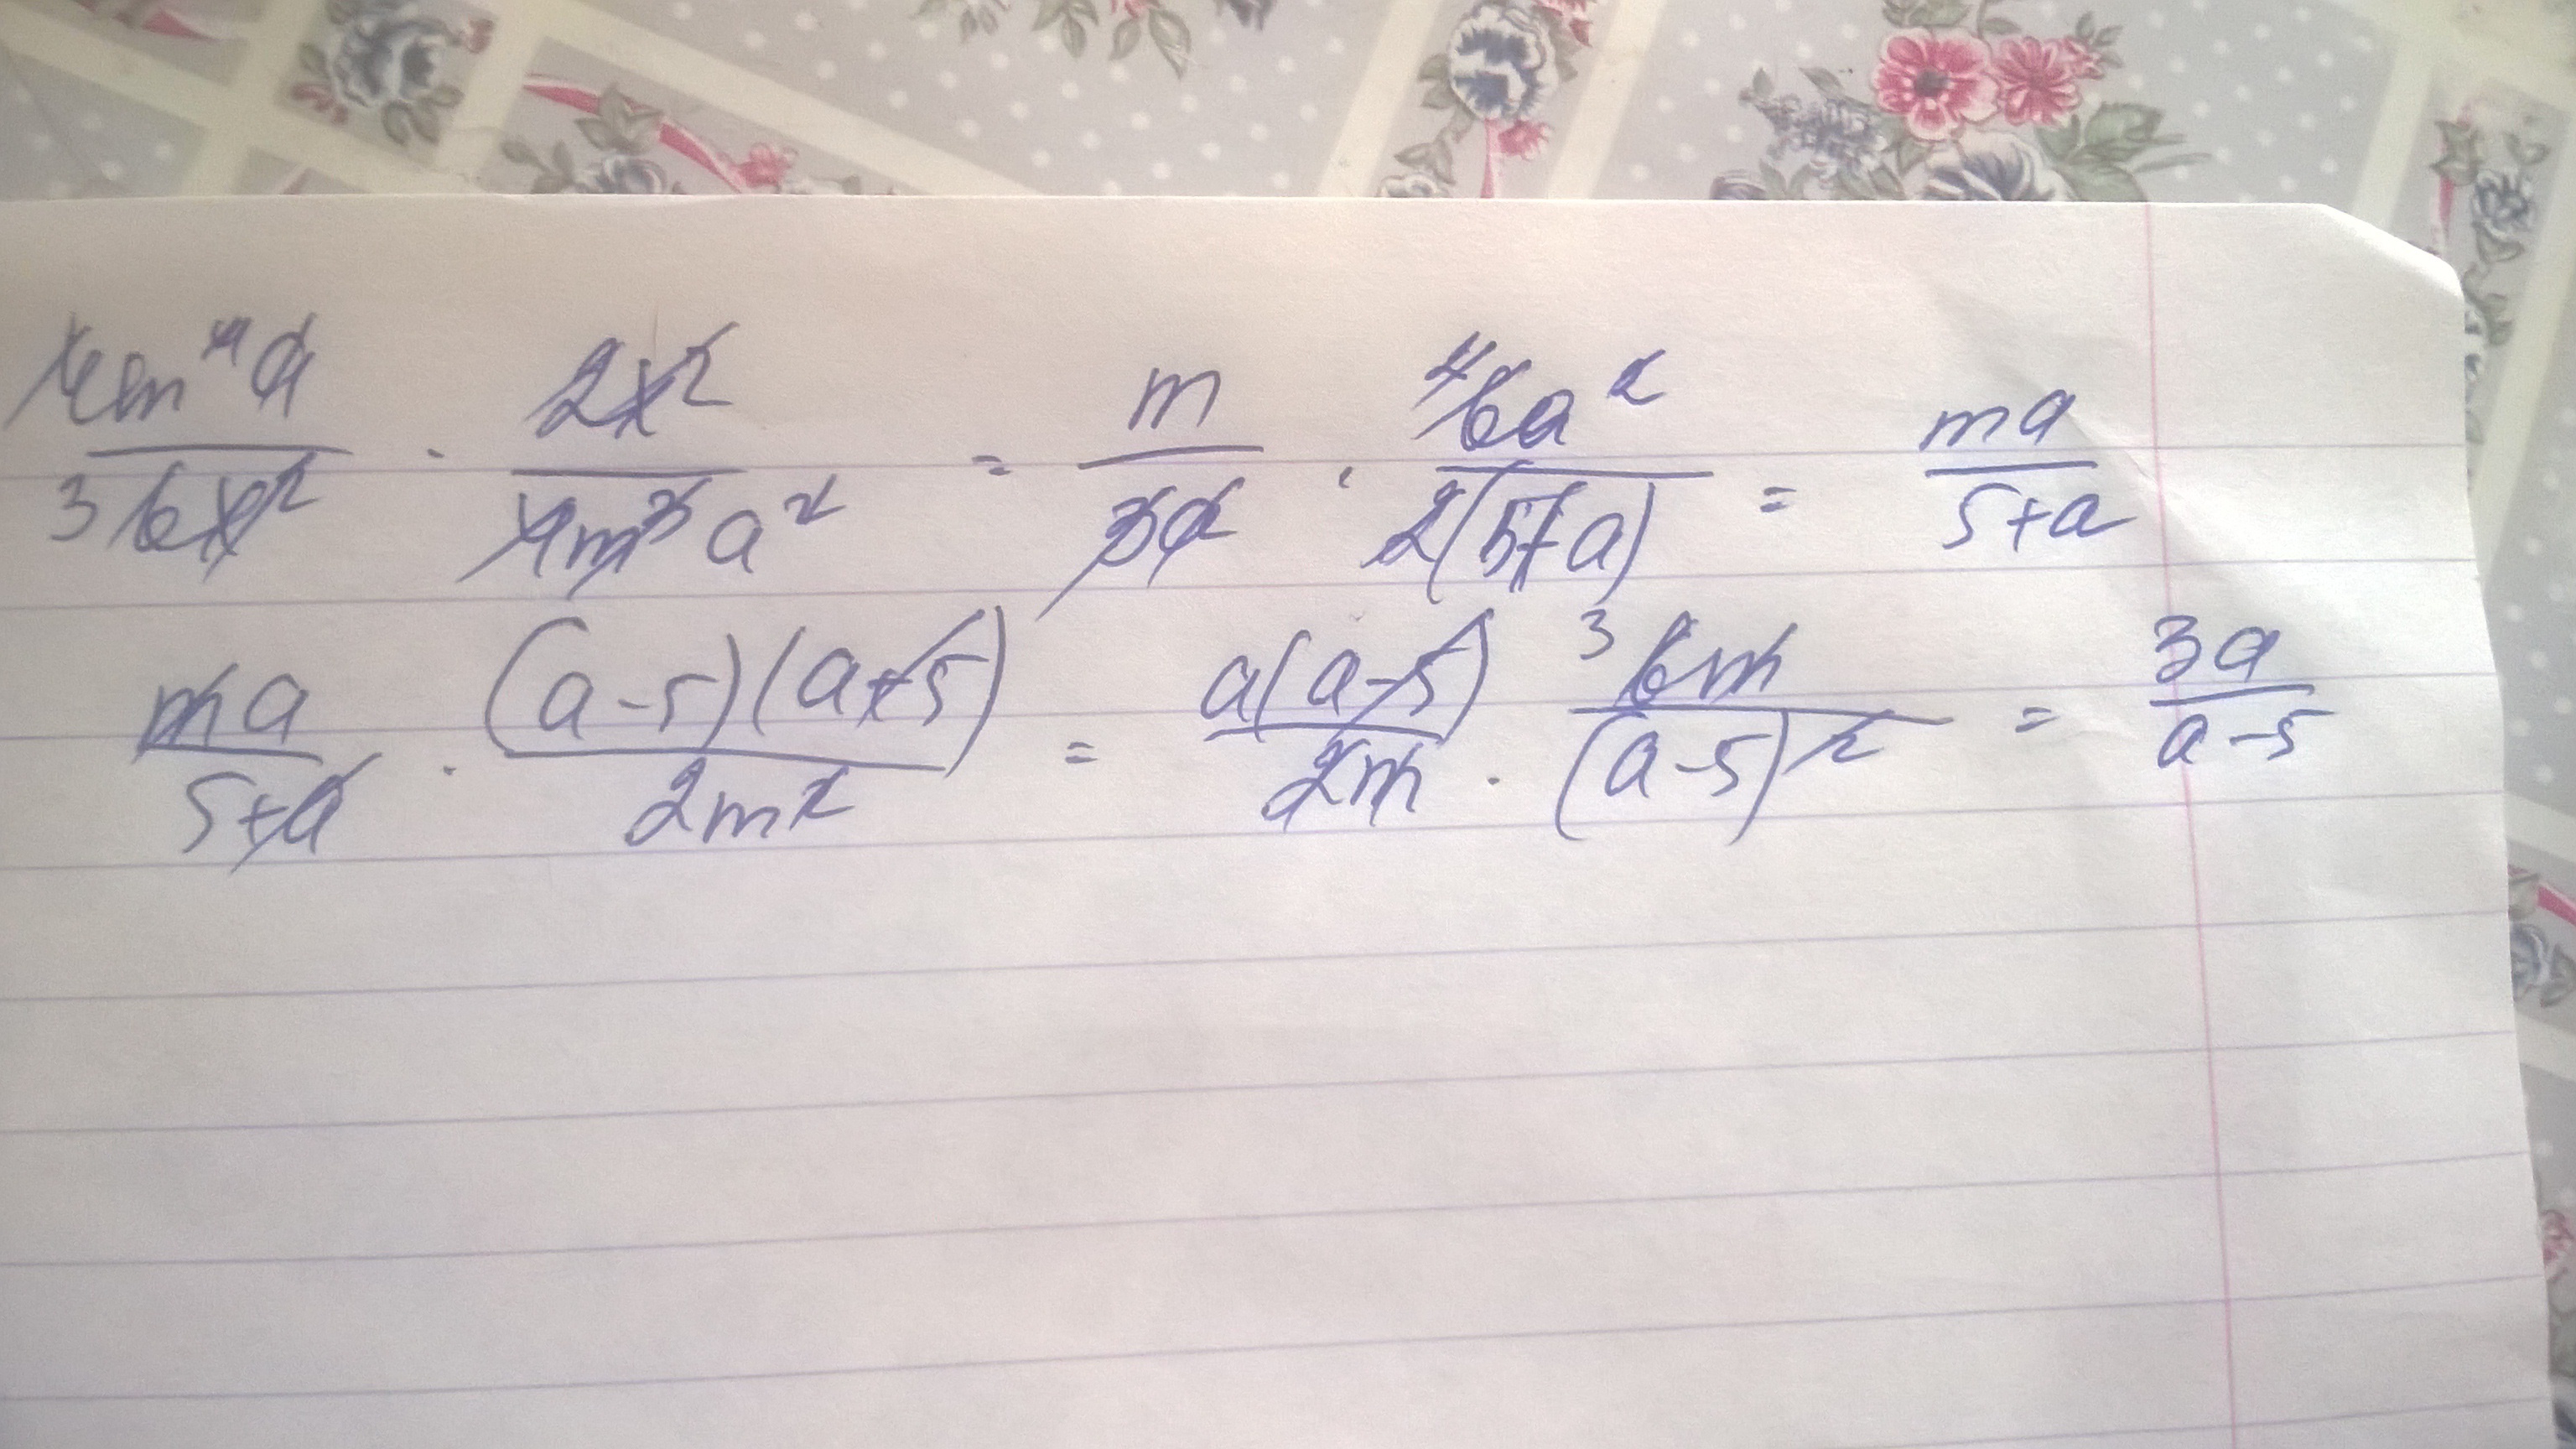 4m⁴a / 3 6x² · 2x² / 4m³a² = m / 3a · 6a² / 2(5+a) = ma / 5+a
ma / 5+a · (a-5)(a+5) / 2m² = a(a-5) / 2m · 3 6m / (a-5)² = 3a / a-5